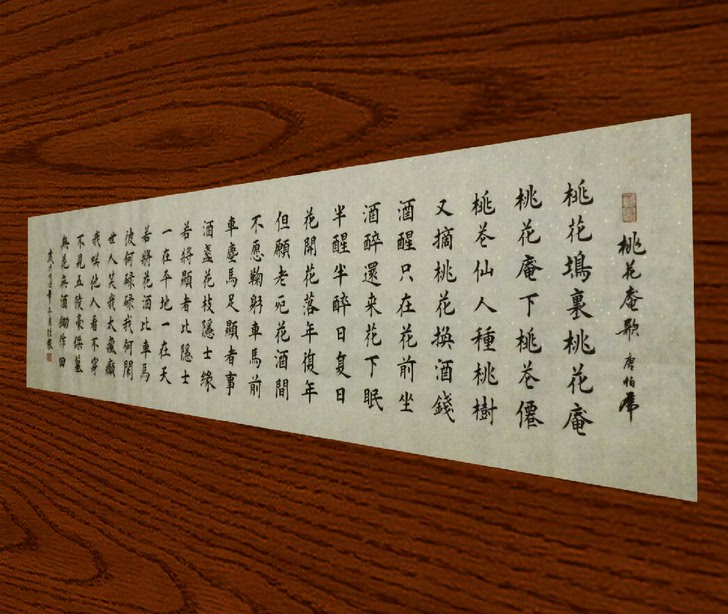 桃花庵歌 唐伯虎
桃花塢裏桃花庵
桃花庵下桃花僊
桃花仙人種桃樹
又摘桃花換酒錢
酒醒只在花前坐
酒醉還来花下眠
半醒半醉日复日
花開花落年復年
但願老死花酒間
不愿鞠躬車馬前
車塵馬足顯者事
酒盞花枝隱士緣
若將顯者比隱士
一在平地一在天
若將花酒比車馬
彼何碌碌我何閑
世人笑我太瘋癲
我咲他人看不穿
不見五陵豪傑墓
無花無酒鋤作田